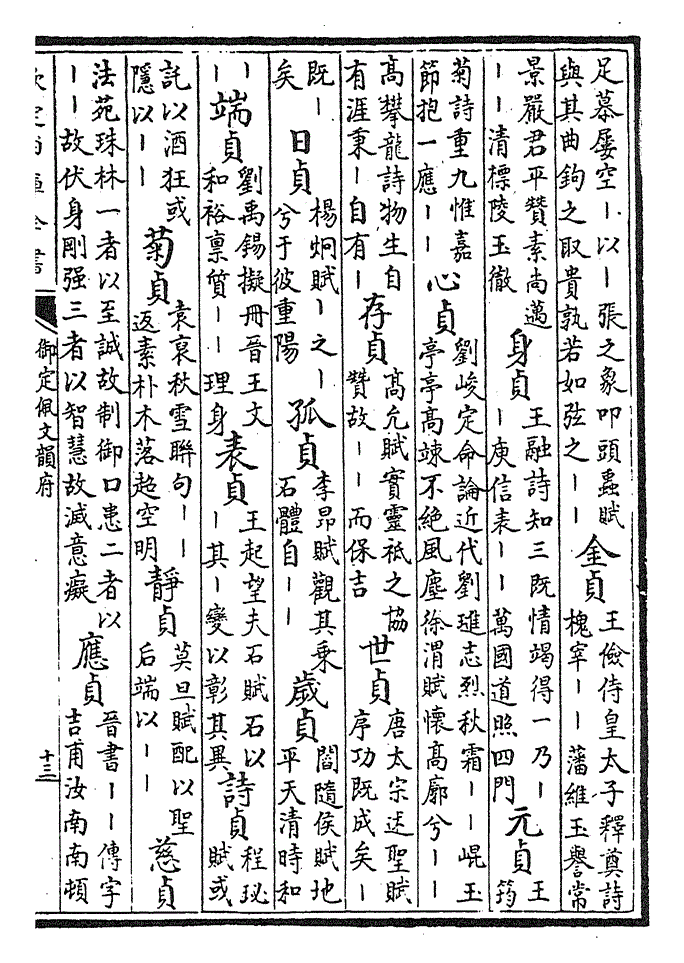 足慕屢空丨以丨張之象叩頭蟲賦
與其曲鉤之取貴孰若如弦之丨丨
金貞
王儉侍皇太子釋奠詩
槐宰丨丨藩維玉譽常
景嚴君平贊素尚邁
丨丨清標陵玉徹
身貞
王融詩知三既情竭得一乃丨
丨庾信表丨丨萬國道照四門
元貞
王
筠
菊詩重九惟嘉
節抱一應丨丨
心貞
劉峻定命論近代劉璡志烈秋霜丨丨崐玉
亭亭高竦不絶風塵徐渭賦懷高廓兮丨丨
高攀龍詩物生自
有涯秉丨自有丨
存貞
高允賦實靈祗之協
贊故丨丨而保吉
世貞
唐太宗述聖賦
序功既成矣丨
既丨
矣
日貞
楊炯賦丨之丨
兮于彼重陽
孤貞
李昂賦觀其秉
石體自丨丨
歲貞
閻隨侯賦地
平天清時和
丨
丨
端貞
劉禹錫擬册晉王文
和裕禀質丨丨理身
表貞
王起望夫石賦石以
丨其丨變以彰其異
詩貞
程珌
賦或
託以酒狂或
隱以丨丨
菊貞
袁裒秋雪聯句丨丨
返素朴木落起空明
靜貞
莫旦賦配以聖
后端以丨丨
慈貞
法苑珠林一者以至誠故制御口患二者以
丨丨故伏身剛强三者以智慧故滅意癡
應貞
晉書丨丨傳字
吉甫汝南南頓
欽定四庫全書
御定佩文韻府
十三